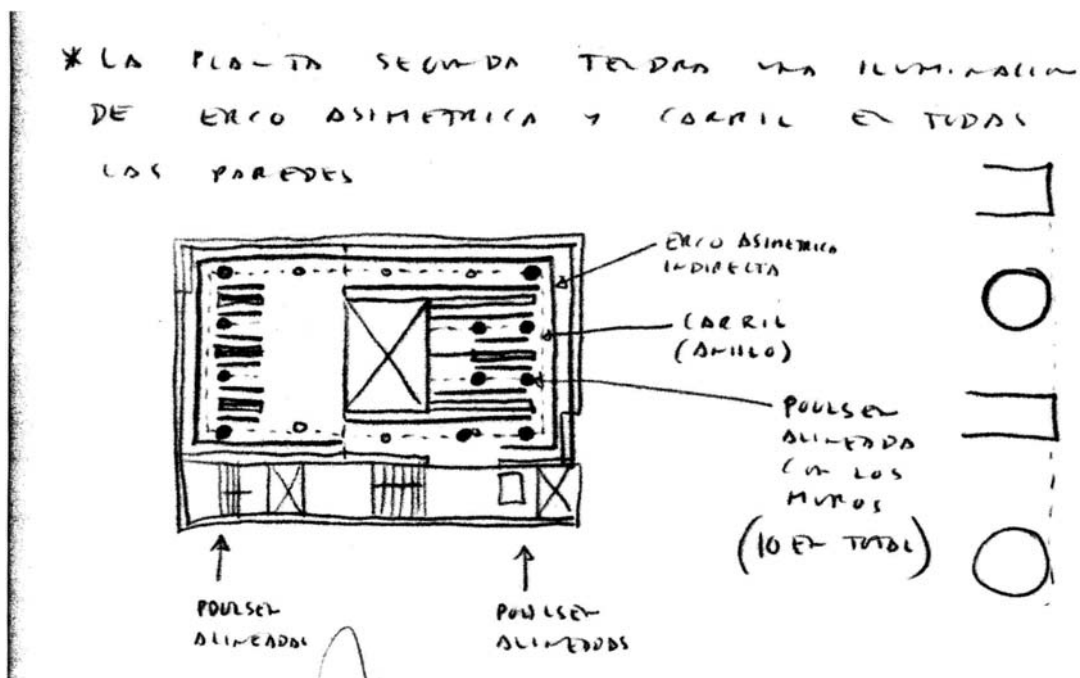 * LA PLANTA SEGUNDA TENDRA UNA ILUMINACION
DE ERCO ASIMETRICA Y CARRIL EN TODAS
LAS PAREDES
ERCO ASIMETRICA
INDIRECTA
CARRIL
(ANILLO)
POULSEN
ALINEADA
CON LOS
MUROS
(10 EN TOTAL)
POULSEN
ALINEADAS
POULSEN
ALINEADAS